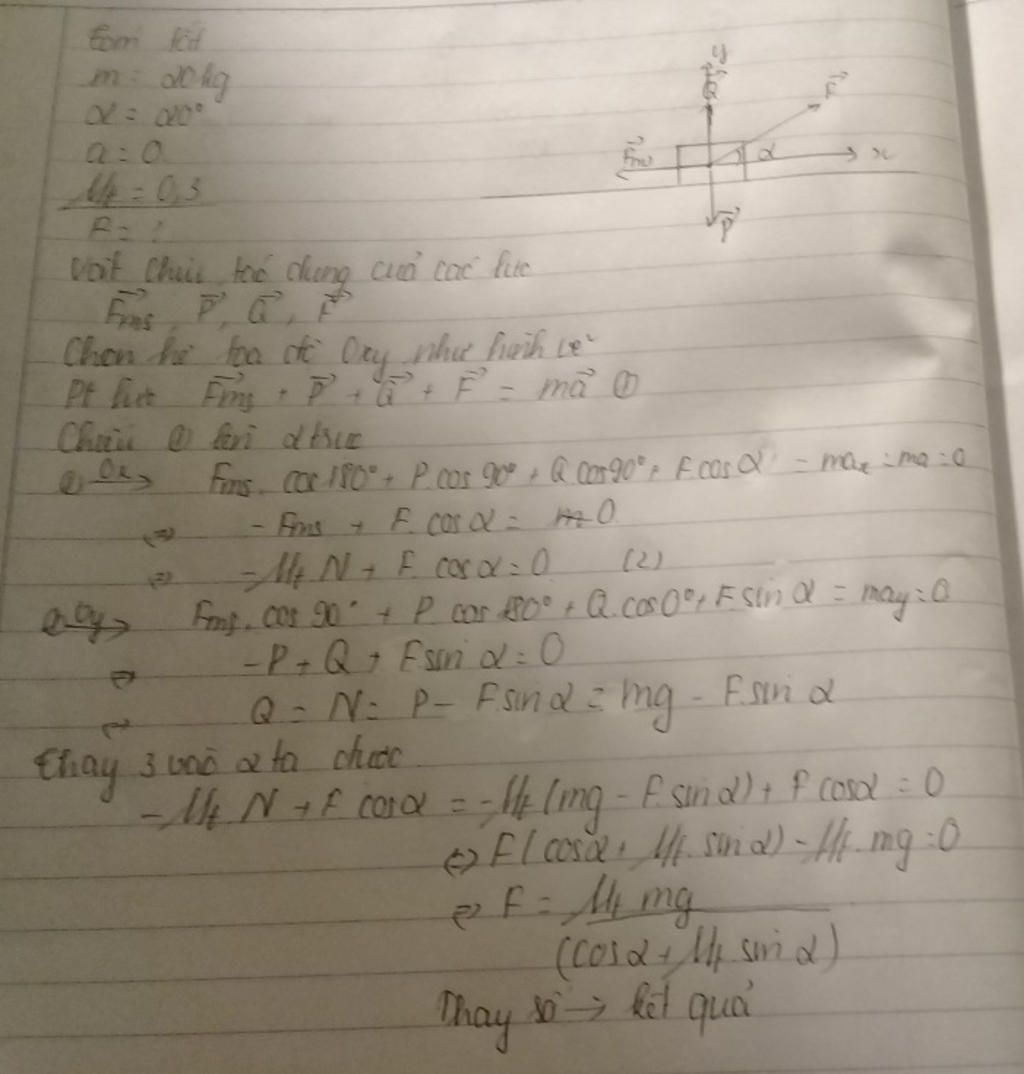 Tóm tắt
m = 20kg
α = 20°
a = 0
μt = 0,3
F = ?
y
Q⃗
F⃗
F⃗ms
α
x
P⃗
Vật chịu tác dụng của các lực
F⃗ms, P⃗, Q⃗, F⃗
Chọn hệ tọa độ Oxy như hình vẽ
Pt lực F⃗ms + P⃗ + Q⃗ + F⃗ = ma⃗ ①
Chiếu ① lên 2 trục
① Ox→ Fms. cos 180° + P.cos 90° + Q cos 90° + F.cosα = max = ma = 0
⇔ - Fms + F. cosα = 0
⇔ - μt N + F. cosα = 0 (2)
Oy→ Fms. cos 90° + P. cos 180° + Q. cos 0° + F.sin α = may = 0
⇔ -P + Q + Fsin α = 0
⇔ Q = N = P - F.sin α = mg - F.sin α
Thay 3 vào 2 ta được
- μt N + F. cosα = - μt (mg - F. sinα) + F cosα = 0
⇔ F(cosα + μt. sinα) - μt. mg = 0
⇔ F = μt mg
(cosα + μt sin α)
Thay số → kết quả